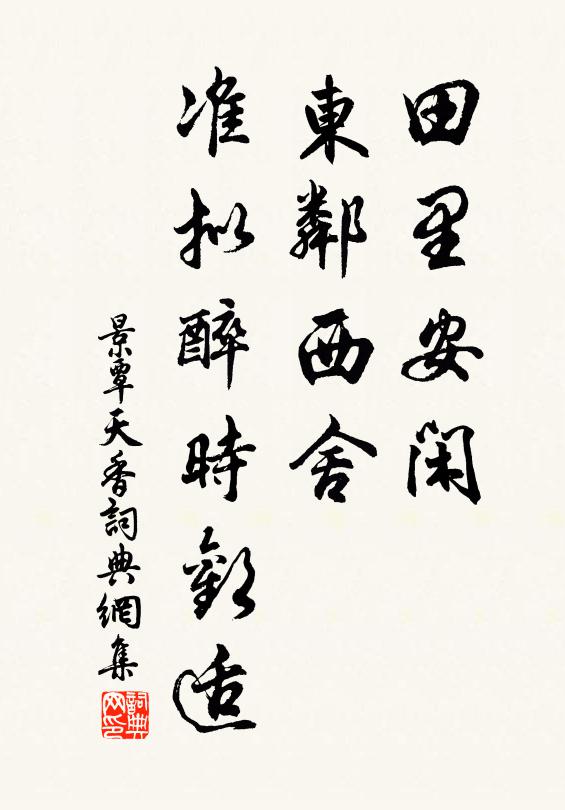 田里安閑
東鄰西舍
准拟醉時歡适
景覃天香詞典網集
詞典網印